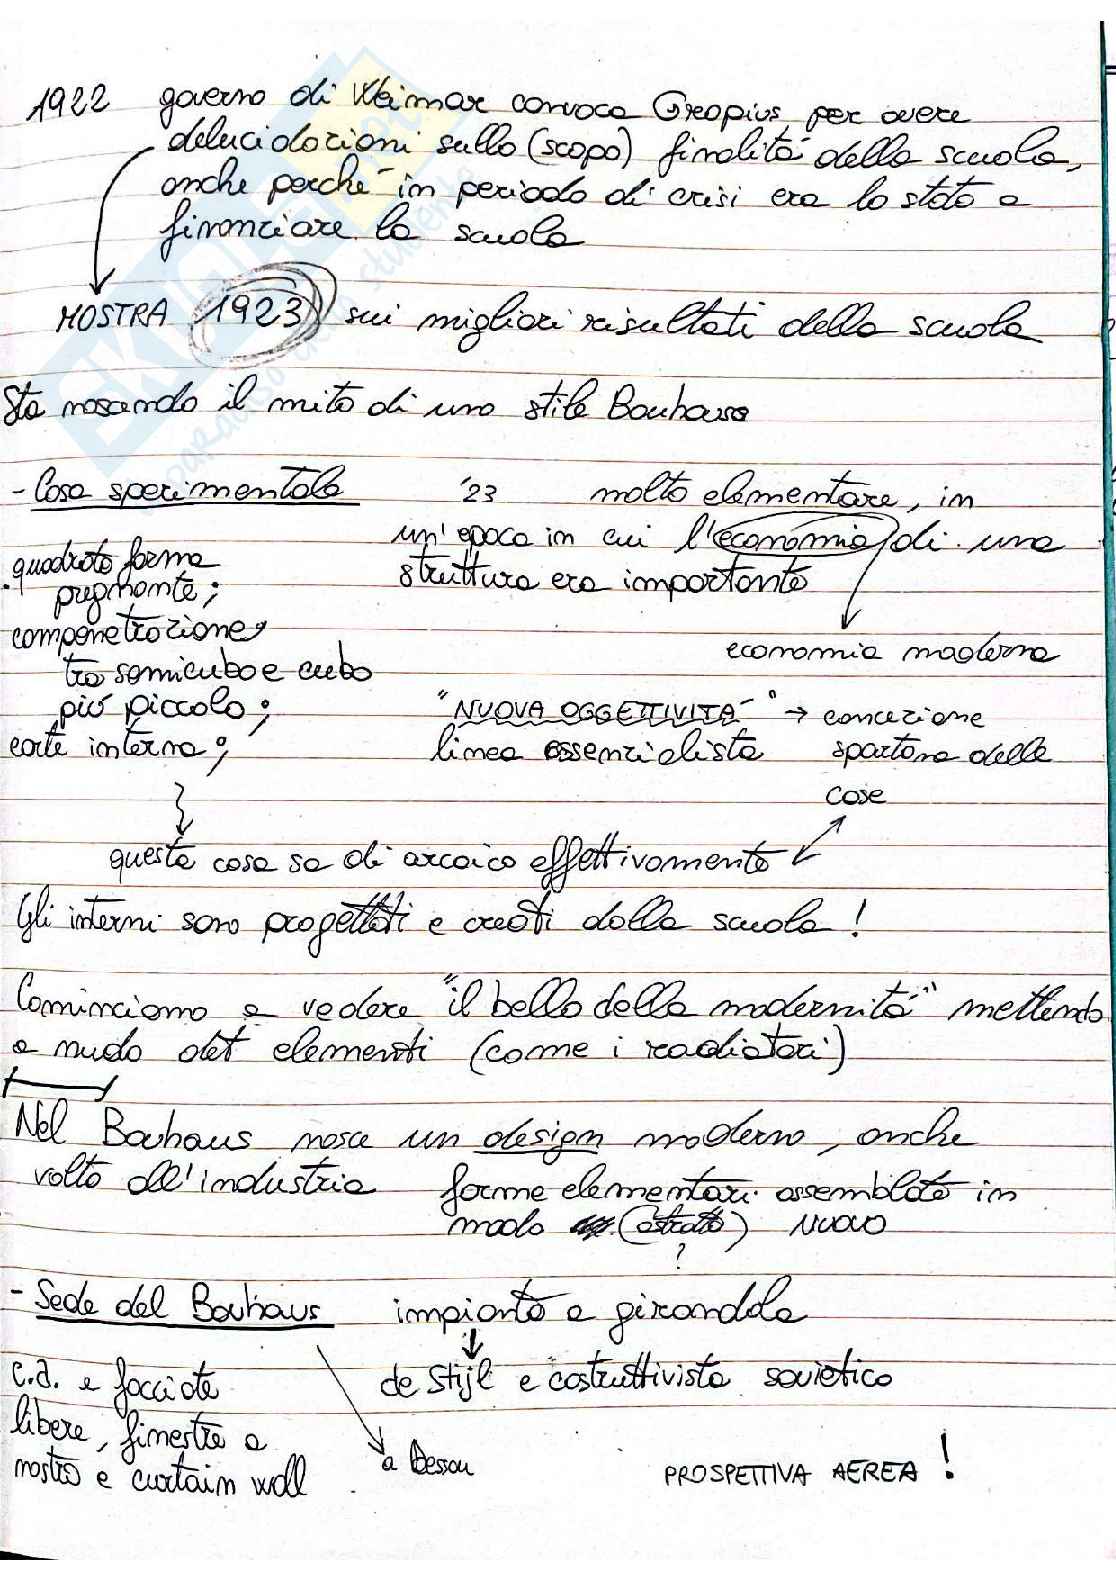 1922 governo di Weimar convoca Gropius per avere
delucidazioni sullo (scopo) finalità della scuola,
anche perché in periodo di crisi era lo stato a
finanziare la scuola
MOSTRA 1923 sui migliori risultati della scuola
Sta nascendo il mito di uno stile Bauhaus
- Casa sperimentale '23 molto elementare, in
un'epoca in cui l'economia di una
struttura era importante
economia moderna
quadrato forma
pregnante;
compenetrazione
tra semicubo e cubo
più piccolo;
corte interna;
"NUOVA OGGETTIVITÀ" → concezione
linea essenzialista spartana delle
cose
questa casa sa di arcaico effettivamente
Gli interni sono progettati e creati dalla scuola!
Cominciamo a vedere "il bello della modernità" mettendo
a nudo elementi (come i radiatori)
Nel Bauhaus nasce un design moderno, anche
volto all'industria forme elementari assemblate in
modo (astratto) NUOVO
?
- Sede del Bauhaus impianto a girandola
de Stijl e costruttivista sovietico
c.a. e facciate
libere, finestre a
nastro e curtain wall
a Dessau
PROSPETTIVA AEREA!